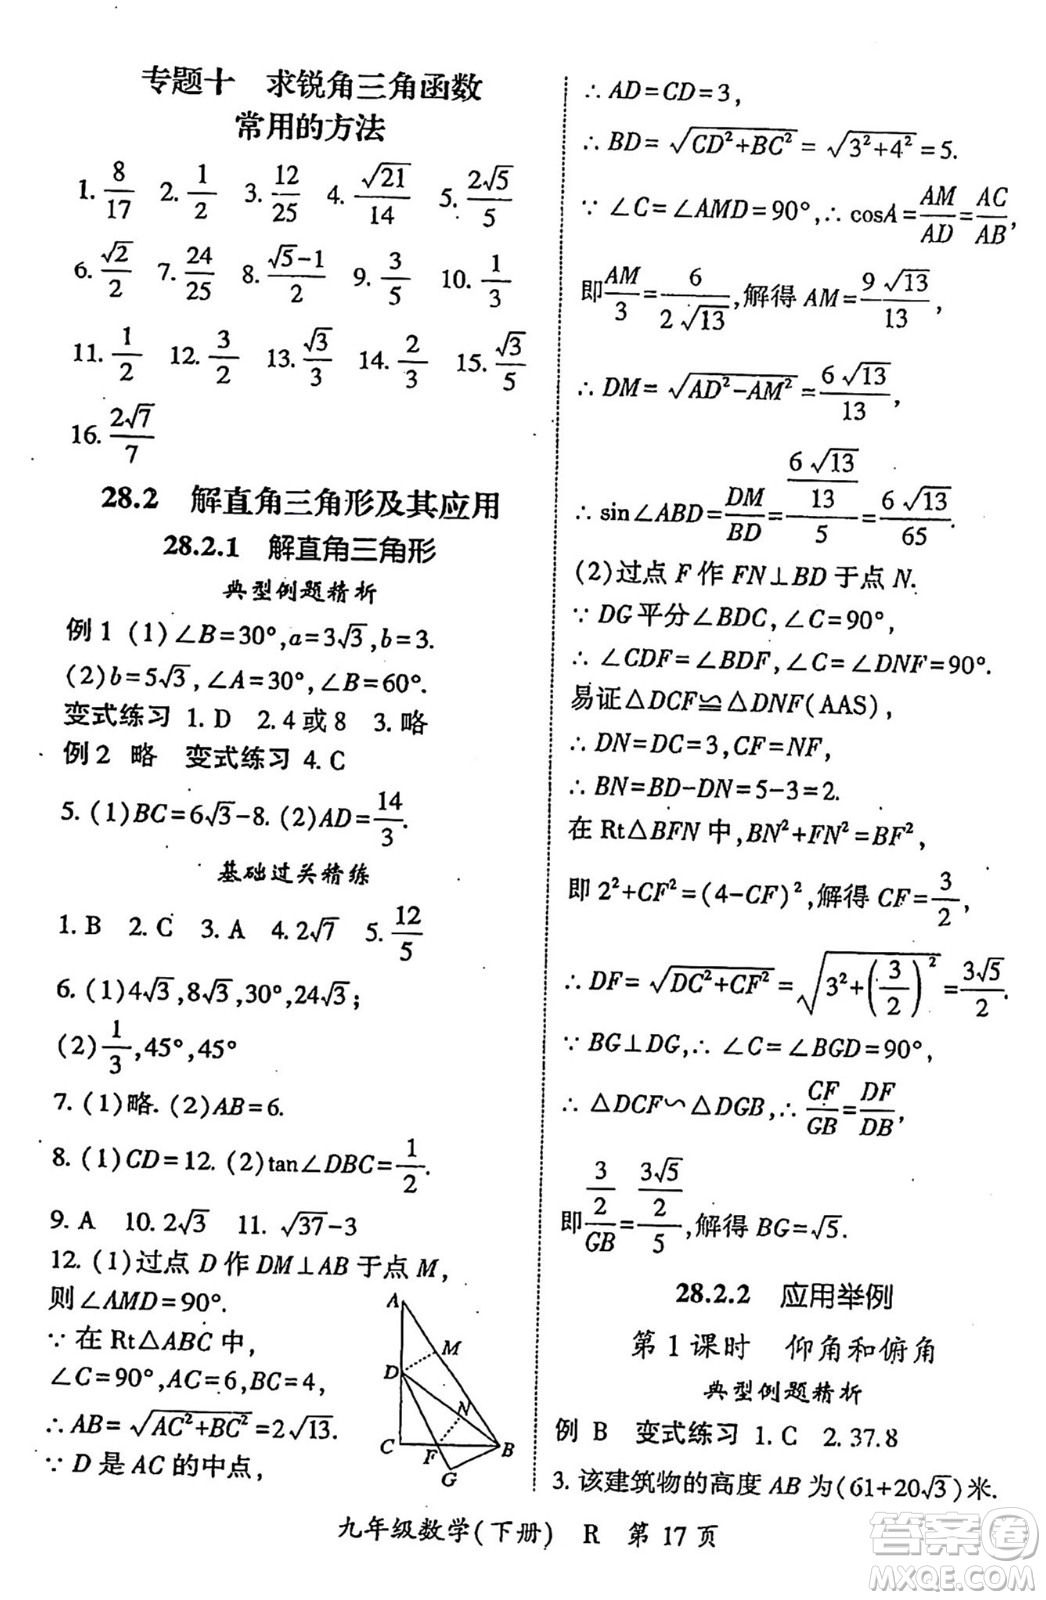 专题十 求锐角三角函数
常用的方法
1. 8/17 2. 1/2 3. 12/25 4. √21/14 5. 2√5/5
6. √2/2 7. 24/25 8. (√5-1)/2 9. 3/5 10. 1/3
11. 1/2 12. 3/2 13. √3/3 14. 2/3 15. √3/5
16. 2√7/7
28.2 解直角三角形及其应用
28.2.1 解直角三角形
典型例题精析
例1 (1)∠B=30°,a=3√3,b=3.
(2)b=5√3,∠A=30°,∠B=60°.
变式练习 1. D 2. 4 或 8 3. 略
例2 略 变式练习 4. C
5. (1)BC=6√3-8. (2)AD=14/3.
基础过关精练
1. B 2. C 3. A 4. 2√7 5. 12/5
6. (1)4√3,8√3,30°,24√3;
(2)1/3,45°,45°
7. (1)略. (2)AB=6.
8. (1)CD=12. (2)tan∠DBC=1/2.
9. A 10. 2√3 11. √37-3
12. (1)过点 D 作 DM⊥AB 于点 M,
则∠AMD=90°.
∵在 Rt△ABC 中,
∠C=90°,AC=6,BC=4,
∴AB=√(AC²+BC²)=2√13.
∵D 是 AC 的中点,
A
M
D
N
C
F
B
G
∴AD=CD=3,
∴BD=√(CD²+BC²)=√(3²+4²)=5.
∵∠C=∠AMD=90°,∴cosA=AM/AD=AC/AB,
即AM/3=6/(2√13),解得 AM=9√13/13,
∴DM=√(AD²-AM²)=6√13/13,
∴sin∠ABD=DM/BD=(6√13/13)/5=6√13/65.
(2)过点 F 作 FN⊥BD 于点 N.
∵DG平分∠BDC,∠C=90°,
∴∠CDF=∠BDF,∠C=∠DNF=90°.
易证△DCF≌△DNF(AAS),
∴DN=DC=3,CF=NF,
∴BN=BD-DN=5-3=2.
在 Rt△BFN 中,BN²+FN²=BF²,
即 2²+CF²=(4-CF)²,解得 CF=3/2,
∴DF=√(DC²+CF²)=√(3²+(3/2)²)=3√5/2.
∵BG⊥DG,∴∠C=∠BGD=90°,
∴△DCF∽△DGB,∴CF/GB=DF/DB,
即(3/2)/GB=(3√5/2)/5,解得 BG=√5.
28.2.2 应用举例
第1课时 仰角和俯角
典型例题精析
例 B 变式练习 1. C 2. 37.8
3. 该建筑物的高度 AB 为(61+20√3)米.
九年级数学(下册) R 第17页
答案卷
MXQE.COM